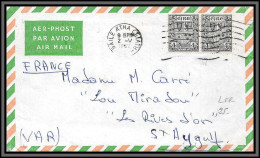 AER-PHOST
PAR AVION
AIR MAIL
BAILE ÁTHA CLIATH
FRANCE
Madame M. Carré
"Lou Miradou"
"Les Rives d'or"
(VAR)
St Aygulf